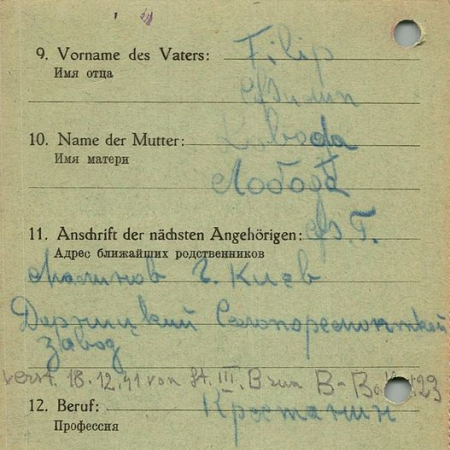 9. Vorname des Vaters: Filip
Имя отца
Филип
10. Name der Mutter: Loboda
Имя матери
Лобода
11. Anschrift der nächsten Angehörigen: Ф. Г.
Адрес ближайших родственников
г. Киев
Дарницкий
завод
verst. 18.12.41 von St. III. B zum B-B
12. Beruf: Крестянин
Профессия